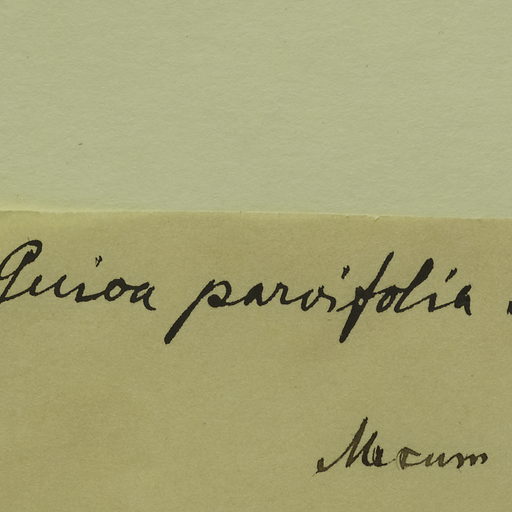 Guioa parvifolia
Mexum